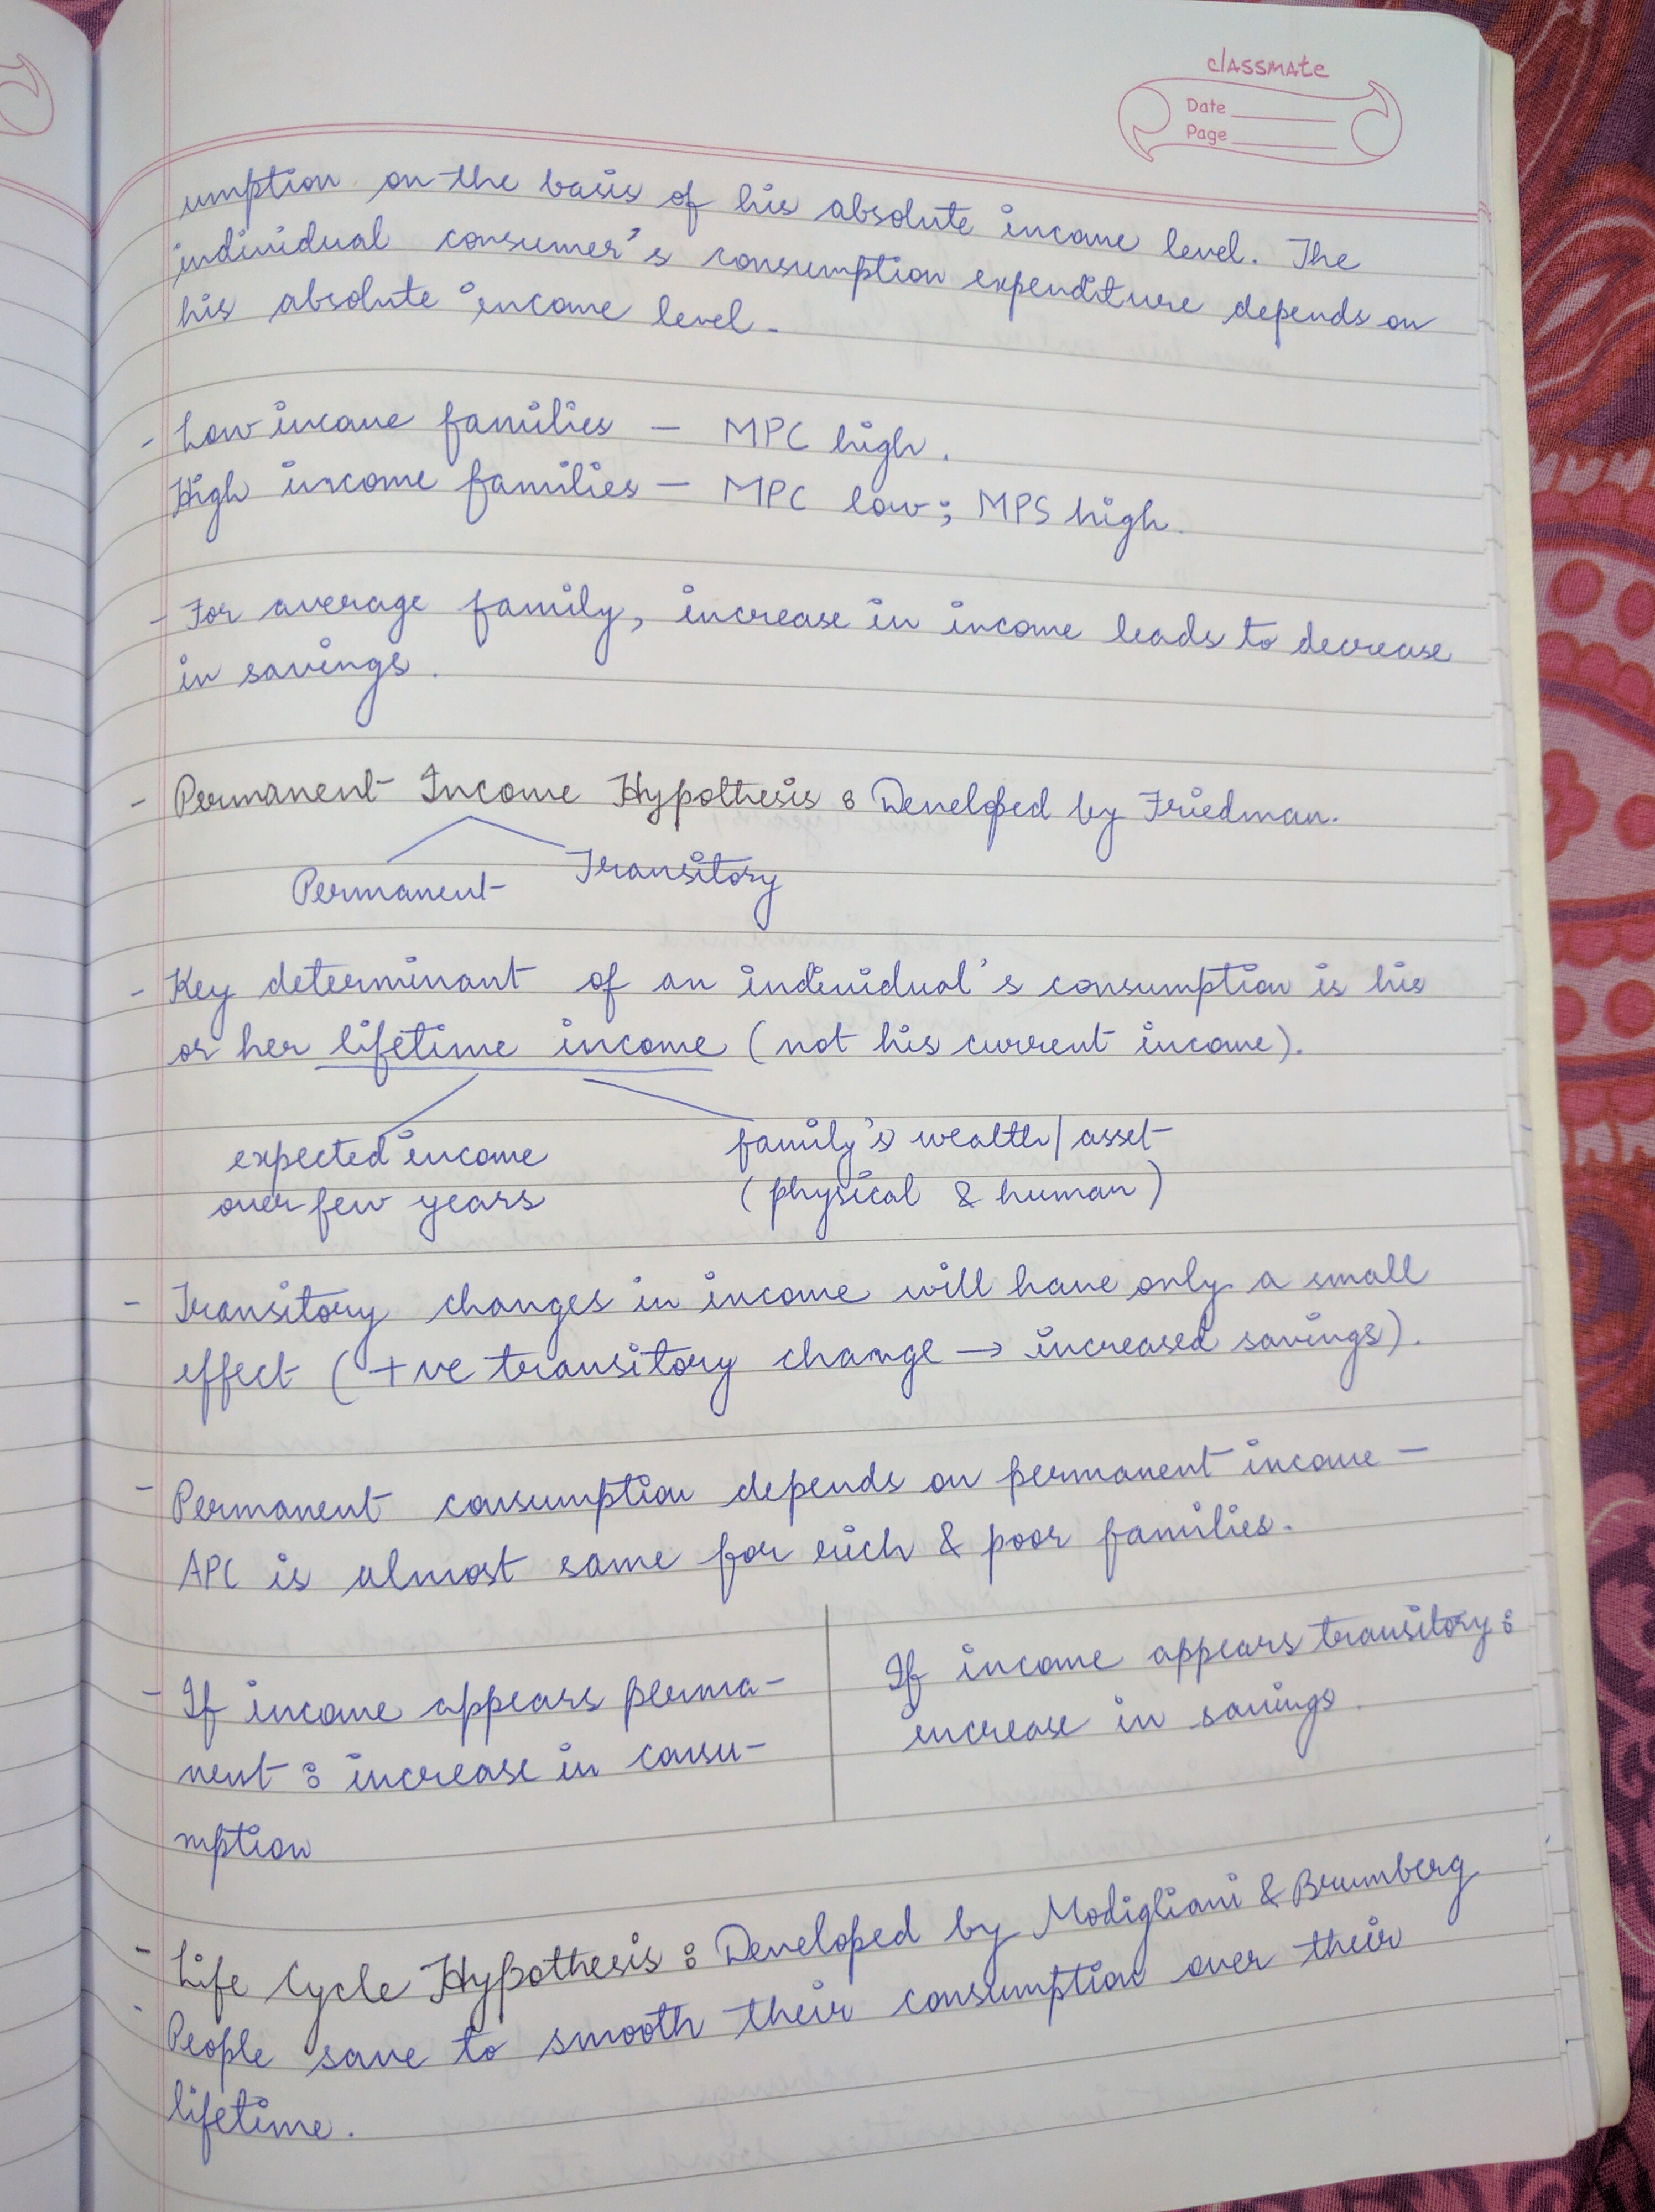 classmate
Date
Page
umption on the basis of his absolute income level. The
individual consumer's consumption expenditure depends on
his absolute income level.
- Low income families — MPC high.
High income families — MPC low; MPS high.
- For average family, increase in income leads to decrease
in savings.
- Permanent Income Hypothesis : Developed by Friedman.
Permanent Transitory
- Key determinant of an individual's consumption is his
or her lifetime income (not his current income).
expected income family's wealth/asset
over few years (physical & human)
- Transitory changes in income will have only a small
effect (+ve transitory change → increased savings).
- Permanent consumption depends on permanent income —
APC is almost same for rich & poor families.
- If income appears perma-
nent : increase in consu-
mption
If income appears transitory :
increase in savings.
- Life Cycle Hypothesis : Developed by Modigliani & Brumberg
- People save to smooth their consumption over their
lifetime.